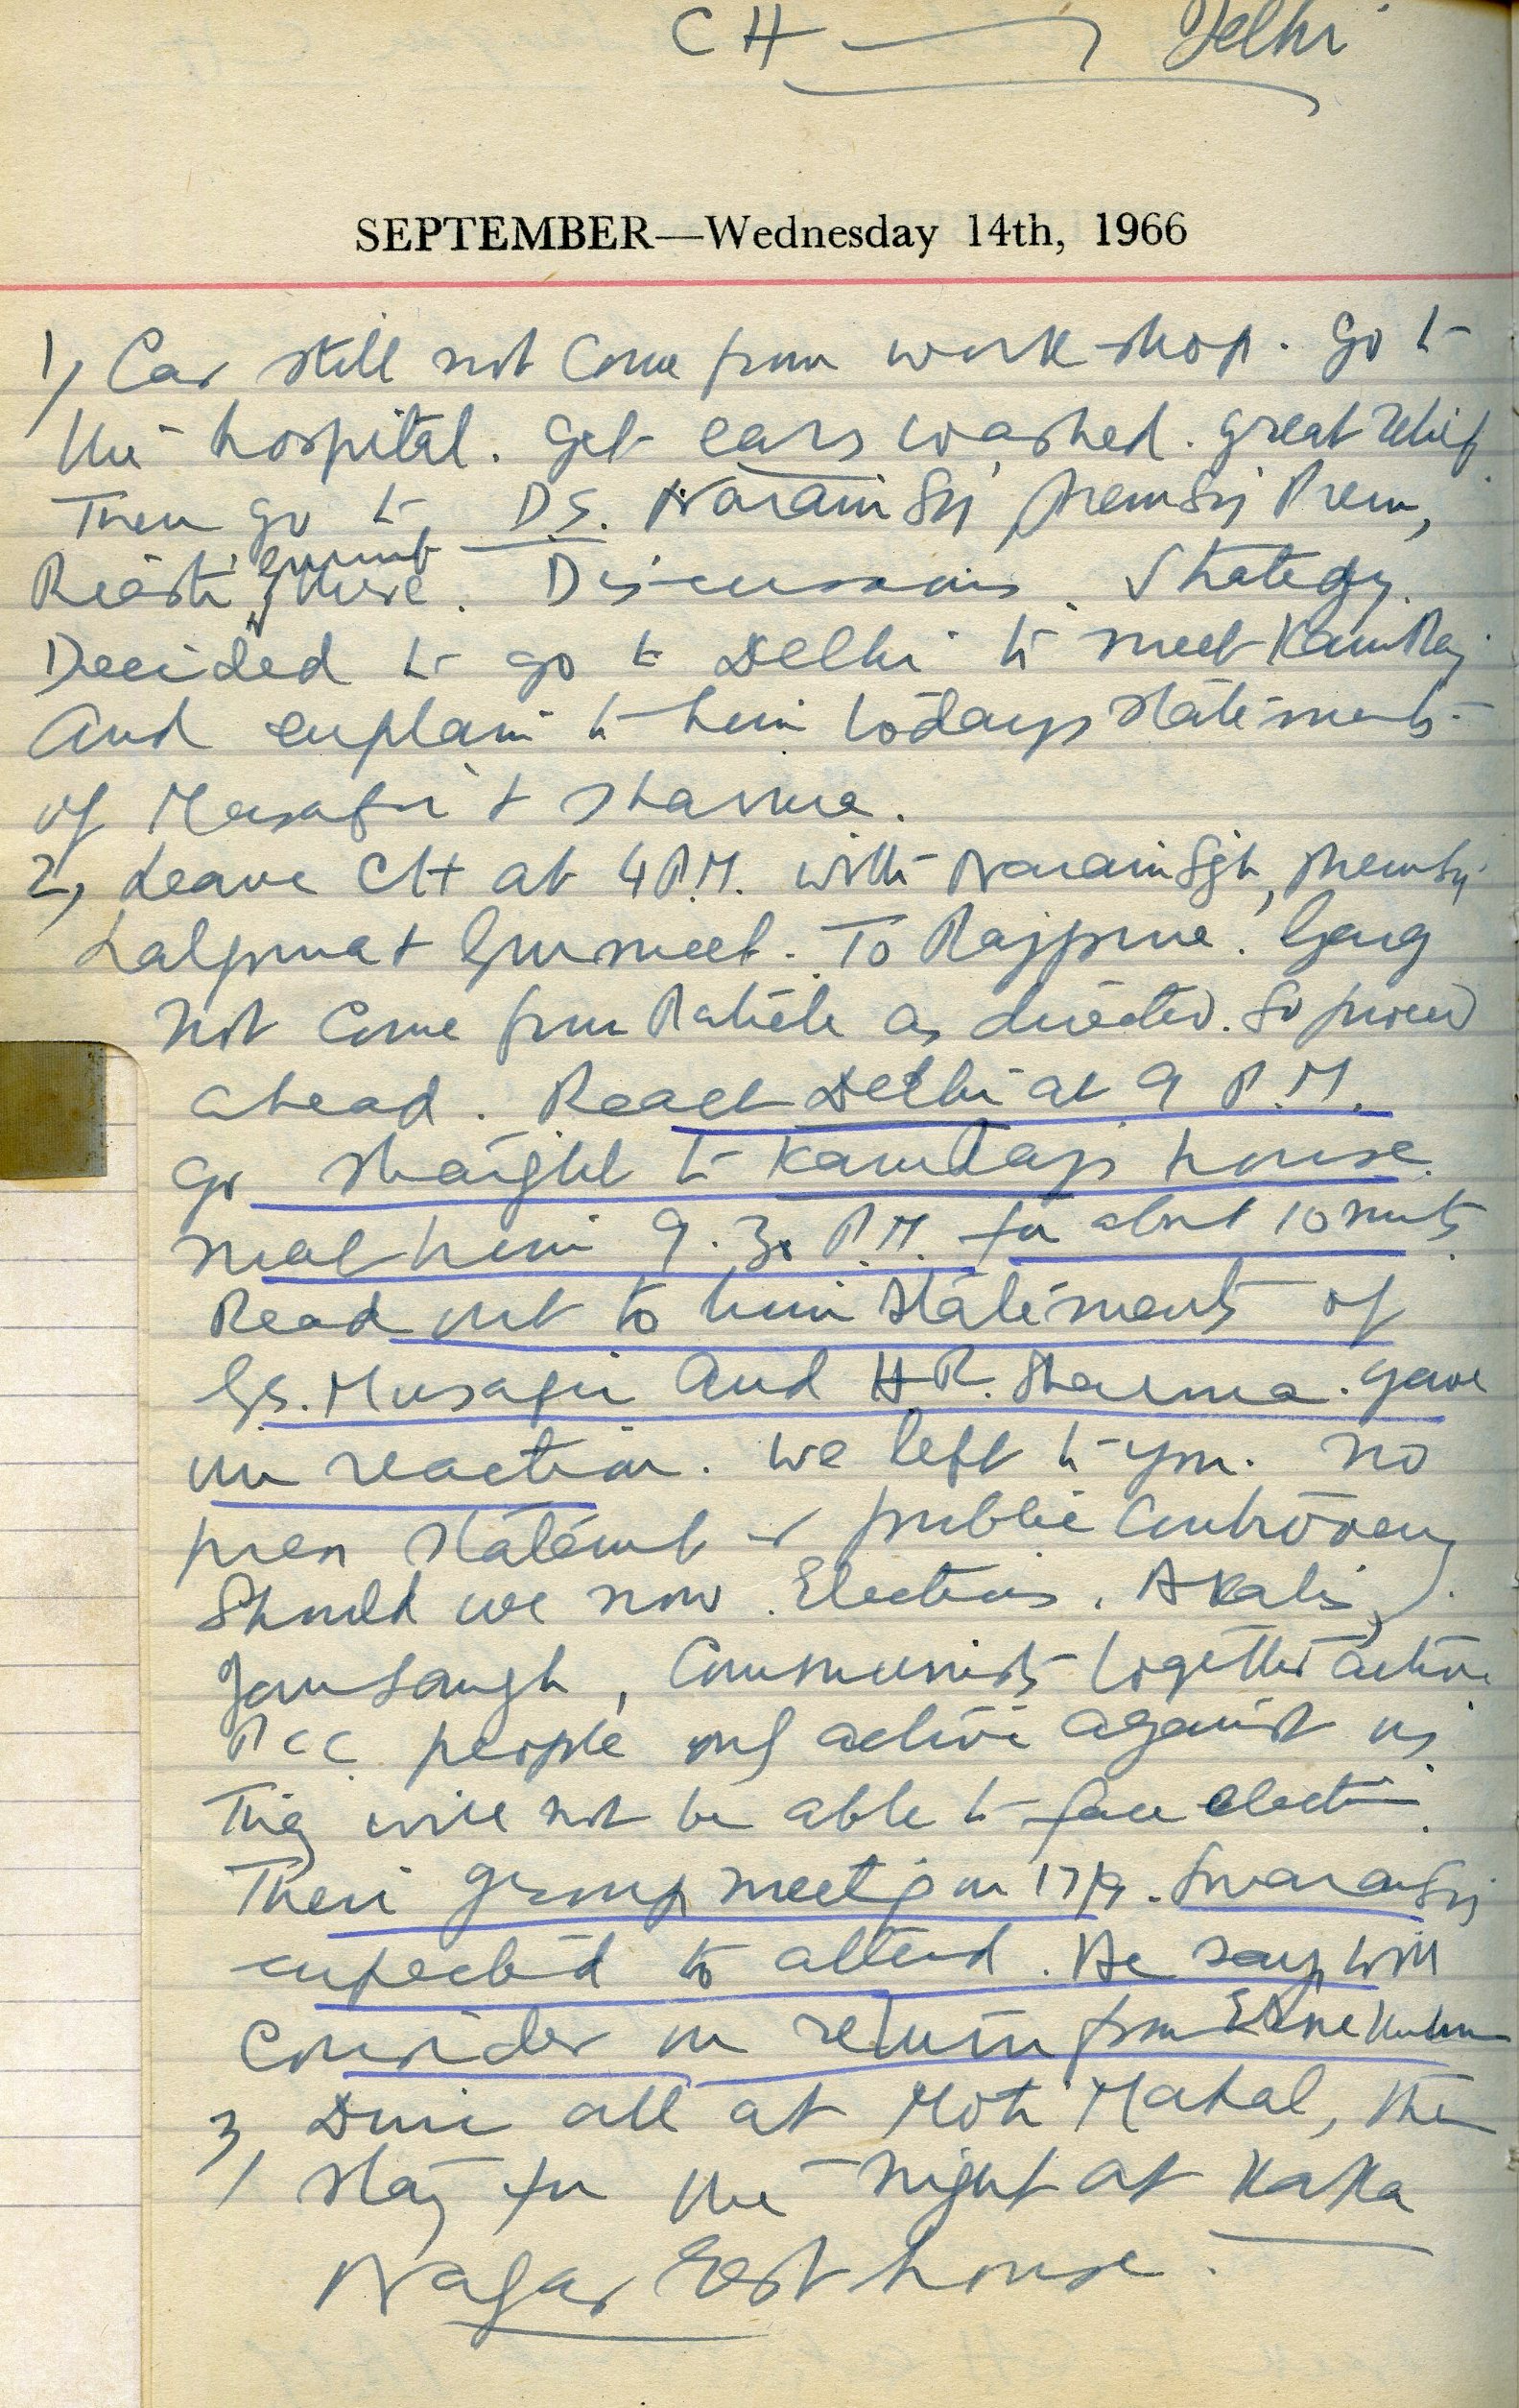 CH — Delhi
SEPTEMBER—Wednesday 14th, 1966
1, Car still not come from work shop. Go to
the hospital. Get ears washed. Great relief
Then go to D.S. Narain Sgj Prem Sgj Prem,
there. Discussions. Strategy.
Decided to go to Delhi to meet KamRaj
And explain to him todays statements
of Musafir + Sharma.
2, Leave CH at 4 P.M. with Narain Sgh, Prem Sgj
Lalpura + Gurmeet. To Rajpura. Garg
not come from Patiala as directed. So proceed
ahead. Reach Delhi at 9 P.M.
Go straight to Kamraj's house.
Meet him 9.30 P.M. for about 10 mnts
Read out to him statements of
GS. Musafir And H.R. Sharma. gave
reaction. We left to you. No
press statemnt or public controversy
Should we now. Elections. Akalis,
Jan Sangh, Communists together active
PCC people only active against us.
They will not be able to face election.
Their group meetg on 17/9. Swaran Sgj
expected to attend. He says will
consider on return from
3, Dine all at Moti Mahal, then
stay for the night at Kaka
Nagar Govt house.